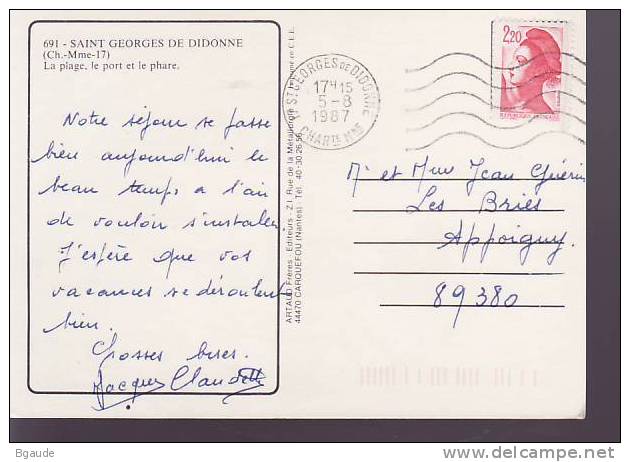 691 - SAINT GEORGES DE DIDONNE
(Ch.-Mme-17)
La plage, le port et le phare.
Notre séjour se passe
bien aujourd'hui le
beau temps a l'air
de vouloir s'installer.
J'espère que vos
vacances se déroulent
bien.
Grosses bises.
Jacques Claudette
ARTAUD Frères - Editeurs - Z.I. Rue de la Métallurgie
44470 CARQUEFOU (Nantes) - Tél. 40-30.26.56
17 ST GEORGES DE DIDONNE
17H15
5-8
1987
CHARTE MME
2,20
REPUBLIQUE FRANÇAISE
Mr et Mme Jean Guérin
Les Bries
Appoigny.
89380
Bgaude
delcampe.net